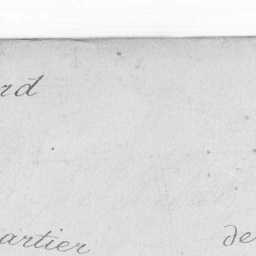 rd
artier de